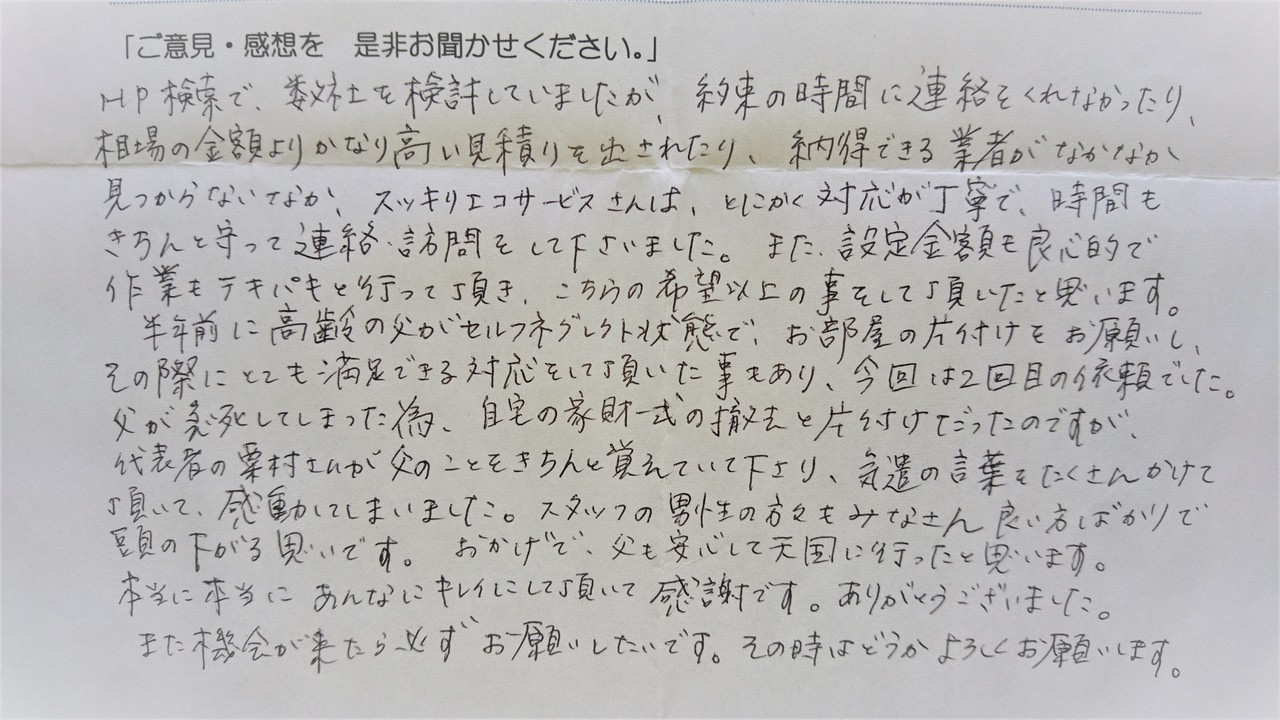 「ご意見・感想を 是非お聞かせください。」
HP検索で、数社を検討していましたが、約束の時間に連絡をくれなかったり、
相場の金額よりかなり高い見積りを出されたり、納得できる業者がなかなか
見つからないなか、スッキリエコサービスさんは、とにかく対応が丁寧で、時間も
きちんと守って連絡・訪問をして下さいました。また、設定金額も良心的で
作業もテキパキと行って頂き、こちらの希望以上の事をして頂いたと思います。
半年前に高齢の父がセルフネグレクト状態で、お部屋の片付けをお願いし、
その際にとても満足できる対応をして頂いた事もあり、今回は2回目の依頼でした。
父が急死してしまった為、自宅の家財一式の撤去と片付けだったのですが、
代表者の粟村さんが父のことをきちんと覚えていて下さり、気遣の言葉をたくさんかけて
頂いて、感動してしまいました。スタッフの男性の方々もみなさん良い方ばかりで
頭の下がる思いです。おかげで、父も安心して天国に行ったと思います。
本当に本当にあんなにキレイにして頂いて感謝です。ありがとうございました。
また機会が来たら必ずお願いしたいです。その時はどうかよろしくお願いします。